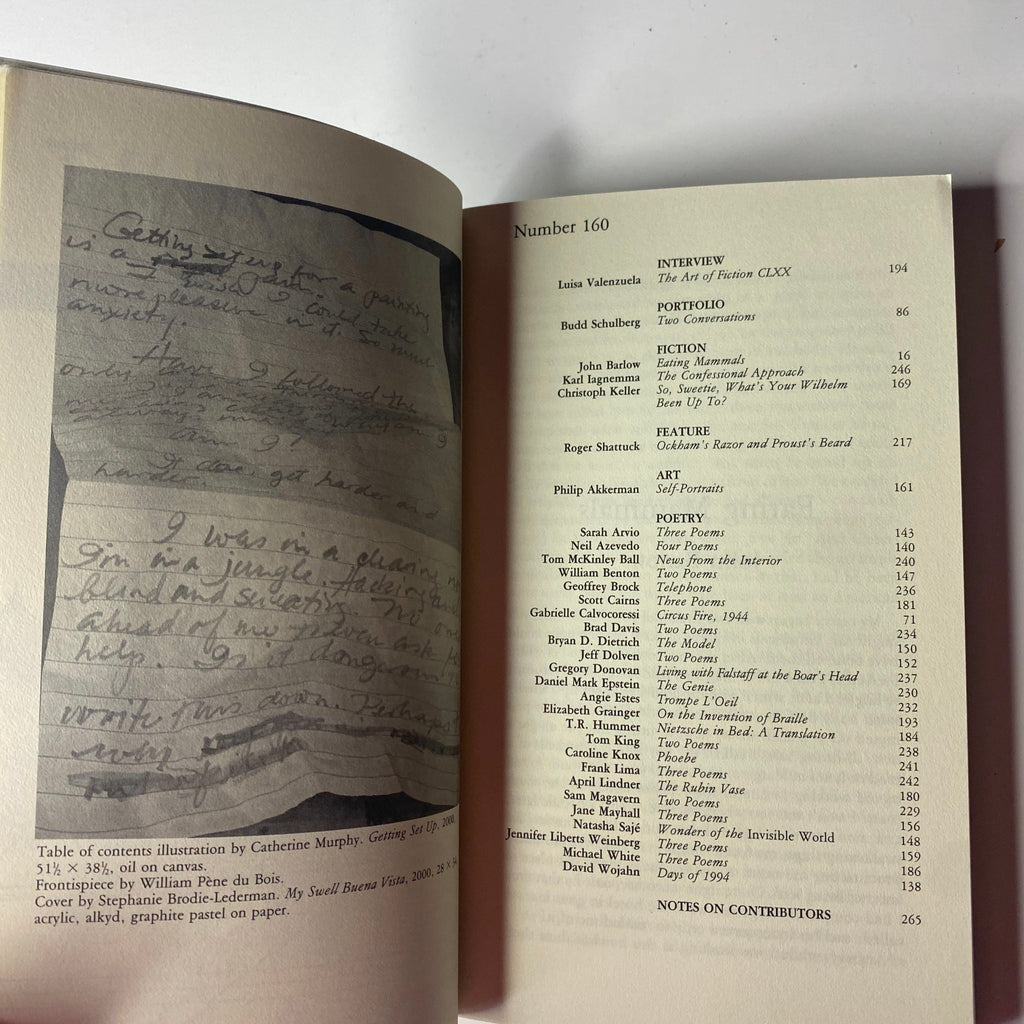 Getting set up for a painting
is a jam. I wish I could take
more pleasure in it. So much
anxiety.
Have I followed the
only
always
am I?
It does get harder and
harder.
I was in a clearing now
I'm in a jungle. Hacking and
blind and sweating. No one
ahead of me even asks to
help. Is it dangerous to
write this down. Perhaps
why
Table of contents illustration by Catherine Murphy. Getting Set Up, 2000,
51½ × 38½, oil on canvas.
Frontispiece by William Pène du Bois.
Cover by Stephanie Brodie-Lederman. My Swell Buena Vista, 2000, 28 × 34
acrylic, alkyd, graphite pastel on paper.
Number 160
INTERVIEW
Luisa Valenzuela The Art of Fiction CLXX 194
PORTFOLIO
Budd Schulberg Two Conversations 86
FICTION
John Barlow Eating Mammals 16
Karl Iagnemma The Confessional Approach 246
Christoph Keller So, Sweetie, What's Your Wilhelm 169
Been Up To?
FEATURE
Roger Shattuck Ockham's Razor and Proust's Beard 217
ART
Philip Akkerman Self-Portraits 161
POETRY
Sarah Arvio Three Poems 143
Neil Azevedo Four Poems 140
Tom McKinley Ball News from the Interior 240
William Benton Two Poems 147
Geoffrey Brock Telephone 236
Scott Cairns Three Poems 181
Gabrielle Calvocoressi Circus Fire, 1944 71
Brad Davis Two Poems 234
Bryan D. Dietrich The Model 150
Jeff Dolven Two Poems 152
Gregory Donovan Living with Falstaff at the Boar's Head 237
Daniel Mark Epstein The Genie 230
Angie Estes Trompe L'Oeil 232
Elizabeth Grainger On the Invention of Braille 193
T.R. Hummer Nietzsche in Bed: A Translation 184
Tom King Two Poems 238
Caroline Knox Phoebe 241
Frank Lima Three Poems 242
April Lindner The Rubin Vase 180
Sam Magavern Two Poems 229
Jane Mayhall Three Poems 156
Natasha Sajé Wonders of the Invisible World 148
Jennifer Liberts Weinberg Three Poems 159
Michael White Three Poems 186
David Wojahn Days of 1994 138
NOTES ON CONTRIBUTORS 265